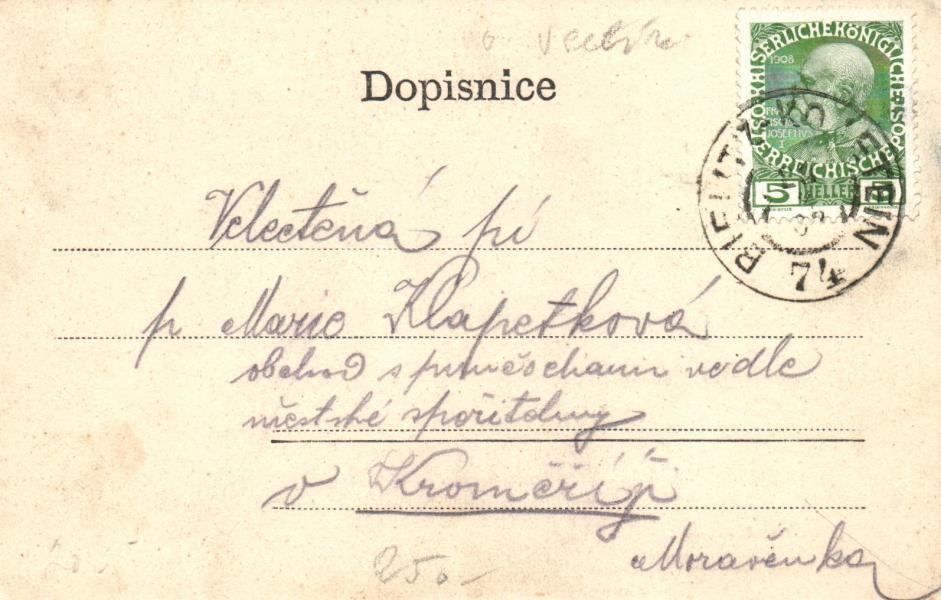 Dopisnice
KAISERLICHE KÖNIGLICHE ÖSTERREICHISCHE POST
1908
JOSEFVS
I
5 HELLER 5
BIELITZ-KOJETEIN
74
Velectěná pí
p Marie Klapetková
obchod s punčochami vedle
městské spořitelny
v Kroměříži
Moravěnka
250.-